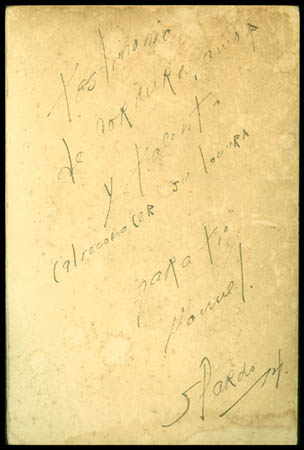 testimonio
de cordura, amor
y talento
(al reconocer su locura
para tio
Manuel.
S Pardo